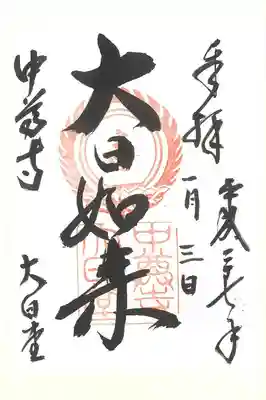 奉拝
平成二七年
一月三日
大日如来
中尊寺
大日堂
中尊寺
大日堂